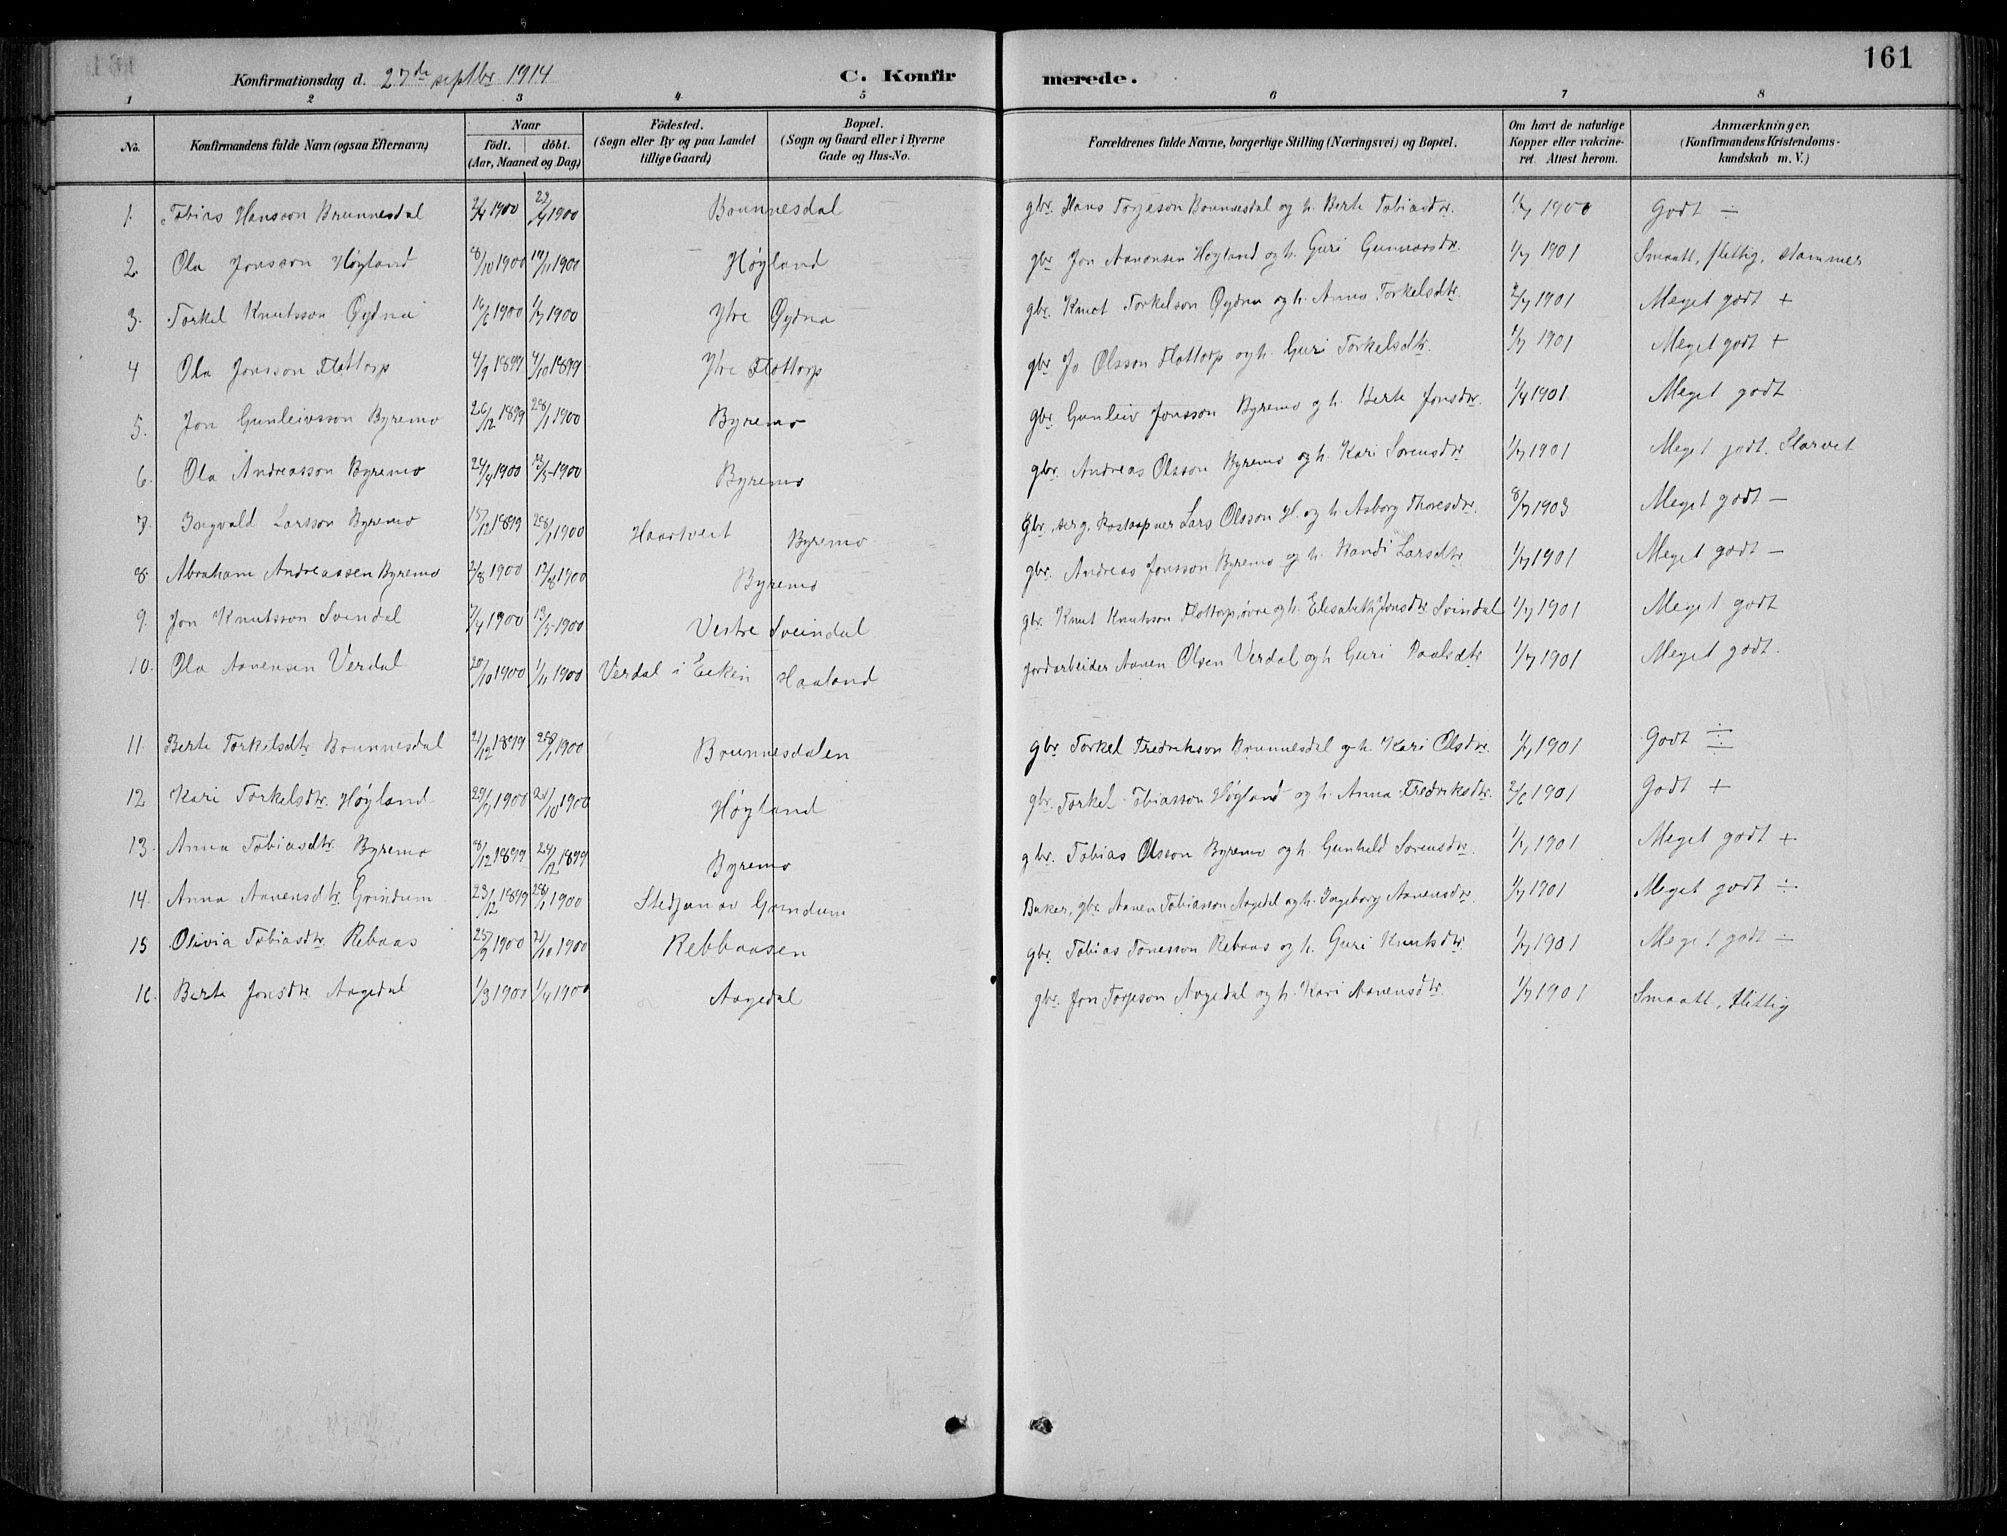 161
Konfirmationsdag d. 27de septbr 1914 C. Konfirmerede.
1 2 3 4 5 6 7 8
No. Konfirmandens fulde Navn (ogsaa Efternavn) Naar födt. döbt. (Aar, Maaned og Dag) Födested. (Sogn eller By og paa Landet tillige Gaard) Bopæl. (Sogn og Gaard eller i Byerne Gade og Hus-No. Forældrenes fulde Navne, borgerlige Stilling (Næringsvei) og Bopæl. Om havt de naturlige Kopper eller vakcineret. Attest herom. Anmærkninger. (Konfirmandens Kristendomskundskab m. V.)
1. Tobias Hansson Brunnesdal 2/4 1900 22/4 1900 Brunnesdal gbr. Hans Torjeson Brunnesdal og h. Berte Tobiasdtr. 1/7 1900 Godt ÷
2 Ola Jonsson Høyland 8/10 1900 14/11 1900 Høyland gbr Jon Aanonsen Høyland og h. Guri Gunnarsdtr. 1/7 1901 Smaatt, flittig, stammer
3. Torkel Knutsson Øydna 16/6 1900 1/7 1900 Ytre Øydna gbr. Knut Torkelson Øydna og h. Anna Torkelsdtr. 2/7 1901 Meget godt +
4 Ola Jonsson Flottorp 4/9 1899 4/10 1899 Ytre Flottorp gbr Jo Olsson Flottorp og h. Guri Torkelsdtr. 1/7 1901 Meget godt +
5. Jon Gunleivsson Byremo 26/12 1899 28/1 1900 Byremo gbr Gunleiv Jonsson Byremo og h. Berte Jonsdtr. 1/7 1901 Meget godt
6. Ola Andreasson Byremo 24/4 1900 13/5 1900 Byremo gbr. Andreas Olsson Byremo og h. Kari Sorensdtr 1/7 1901 Meget godt. Slarvet
7. Ingvald Larsson Byremo 15/12 1899 28/1 1900 Haartveit Byremo gbr, og Postaapner Lars Olsson H. og h. Asborg Thoresdtr. 8/7 1903 Meget godt -
8. Abraham Andreassen Byremo 2/8 1900 19/8 1900 Byremo gbr. Andreas Jonsson Byremo og h. Randi Larsdtr 1/7 1901 Meget godt -
9. Jon Knutsson Svendal 7/4 1900 13/5 1900 Vestre Sveindal gbr. Knut Knutsson Flottorp, øvre og h. Elisabeth Jonsdtr Svindal 1/7 1901 Meget godt
10. Ola Aanensen Verdal 20/10 1900 1/11 1900 Verdal i Eeken Haaland jordarbeider Aanen Olsen Verdal og h Guri Paalsdtr 1/7 1901 Meget godt.
11. Berte Torkelsdtr Brunnesdal 21/12 1899 28/1 1900 Brunnesdalen gbr Torkel Fredrikson Brunnesdal og h. Kari Olsdtr. 1/7 1901 Godt ÷
12 Kari Torkelsdtr. Høyland 29/9 1900 21/10 1900 Høyland gbr. Torkel Tobiasson Høyland og h. Anna Fredriksdtr. 2/6 1901 Godt +
13. Anna Tobiasdtr Byremo 8/12 1899 24/12 1899 Byremo gbr. Tobias Olsson Byremo og h. Gunhild Sorensdtr. 1/7 1901 Meget godt +
14. Anna Aanensdtr. Grindum 23/12 1899 28/1 1900 Stedjan av Grindum Buker, gbr. Aanen Tobiasson Aagedal og h. Ingeborg Aanensdtr. 1/7 1901 Meget godt ÷
15 Olivia Tobiasdtr. Rebaas 25/9 1900 21/10 1900 Rebbaasen gbr. Tobias Tonesson Rebaas og h. Guri Knutsdtr. 1/7 1901 Meget godt ÷
16. Berte Jonsdtr. Aagedal 1/3 1900 1/4 1900 Aagedal gbr. Jon Torjeson Aagedal og h. Kari Aanensdtr. 1/7 1901 Smaatt, flittig